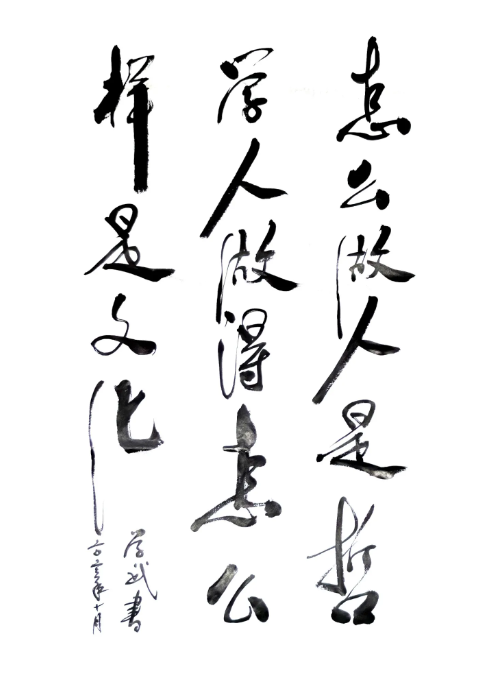 怎么做人是哲
学人做得怎么
样是文化
学武書
十月